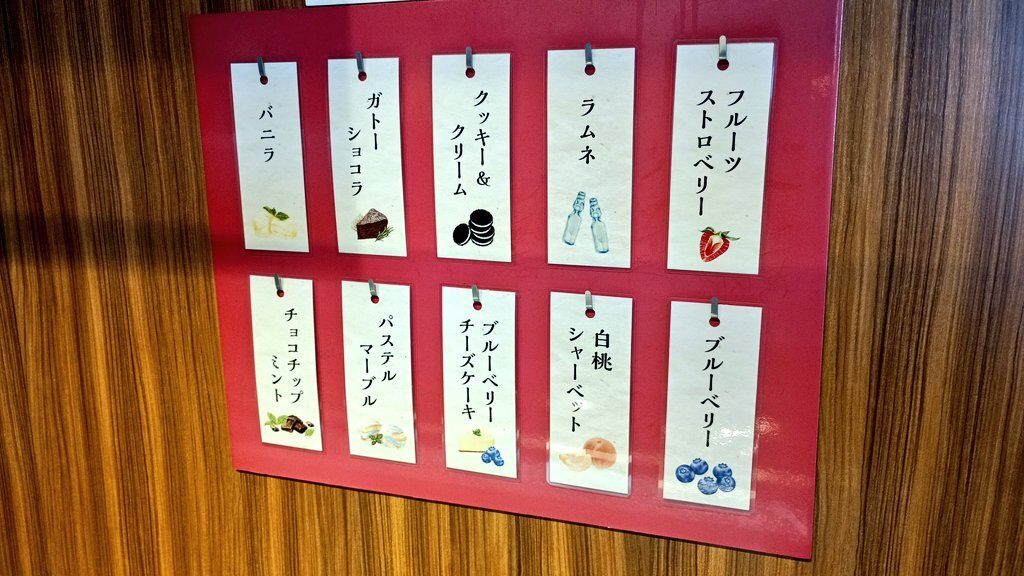 バニラ
ガトー
ショコラ
クッキー&
クリーム
ラムネ
フルーツ
ストロベリー
チョコチップ
ミント
パステル
マーブル
ブルーベリー
チーズケーキ
白桃
シャーベット
ブルーベリー